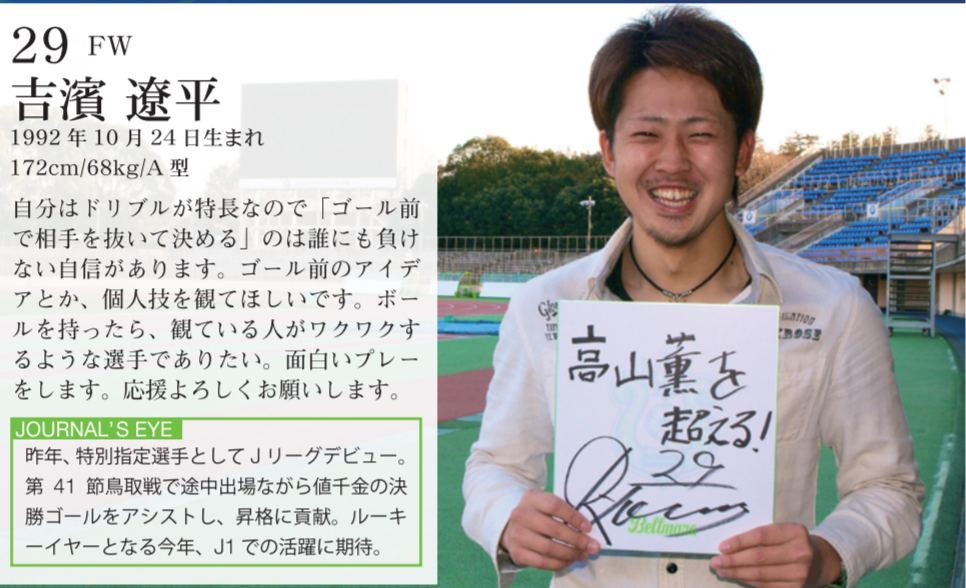 29 FW
吉濱 遼平
1992年10月24日生まれ
172cm/68kg/A型
自分はドリブルが特長なので「ゴール前
で相手を抜いて決める」のは誰にも負け
ない自信があります。ゴール前のアイデ
アとか、個人技を観てほしいです。ボー
ルを持ったら、観ている人がワクワクす
るような選手でありたい。面白いプレー
をします。応援よろしくお願いします。
JOURNAL'S EYE
昨年、特別指定選手としてJリーグデビュー。
第 41 節鳥取戦で途中出場ながら値千金の決
勝ゴールをアシストし、昇格に貢献。ルーキ
ーイヤーとなる今年、J1での活躍に期待。
高山薫を
超える!
29
Bellmare